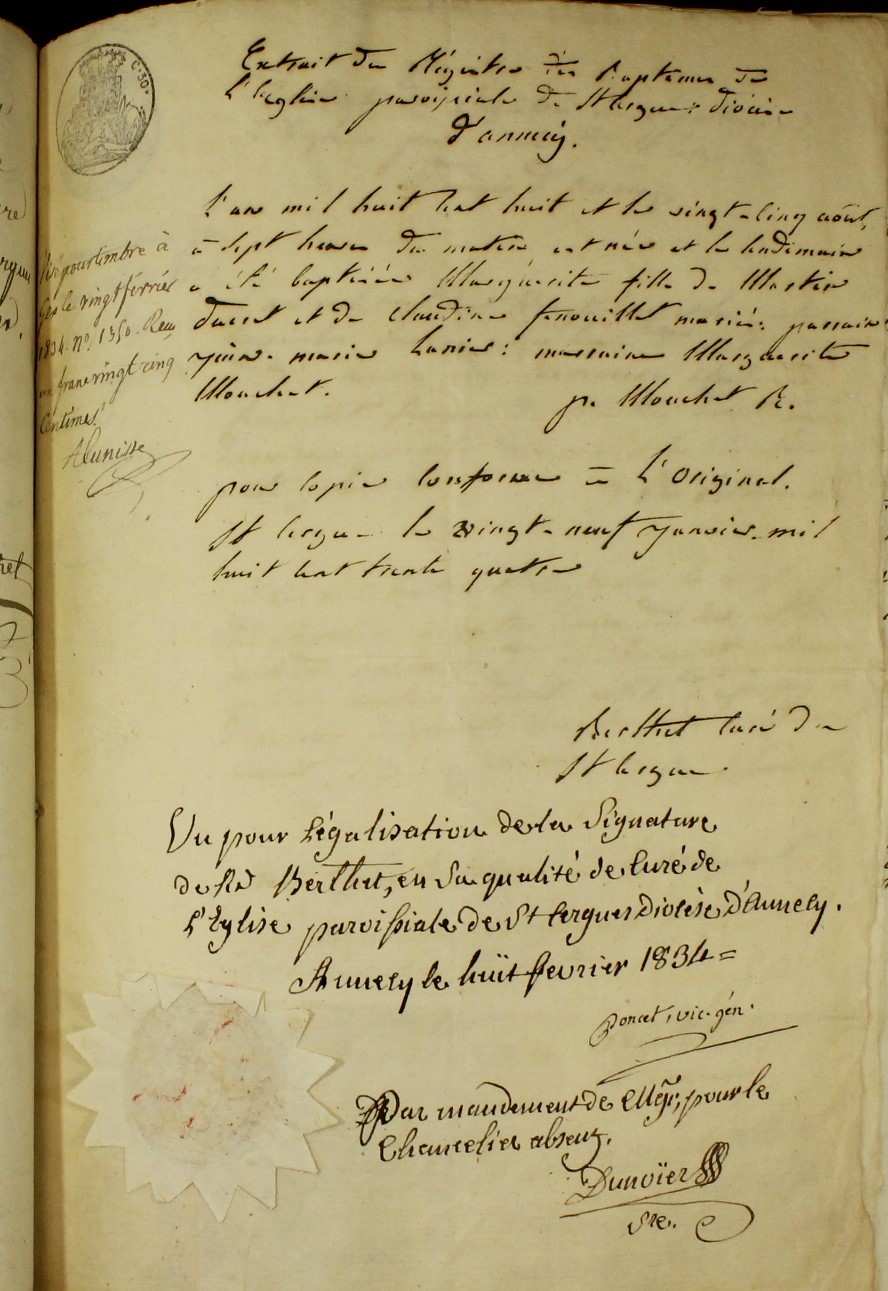 C. 30.
Extrait du Régistre des Baptemes de
L'Eglise paroissiale de St Cergues diocèse
d'annecy.
L'an mil huit cent huit et le vingt-cinq août,
à sept heures du matin est née et le lendemain
a été baptisée Marguerite fille de Martin
ducret et de claudine fenouillet mariés: parrain
marie : marraine Marguerite
Mouchet. p. Mouchet R.
pour copie conforme à L'Original.
St Cergues le vingt-neuf janvier mil
huit cent trente quatre
Berthet curé de
St Cergues.
Visé pour timbre à
Gex le vingt février
1834. N°. 1350. Reçu
un franc vingt cinq
Centimes
Vu pour Légalisation de la Signature
de Rd Berthet, en Sa qualité de Curé de
L'Eglise paroissiale de St Cergues Diocèse D'Annecy.
Annecy le huit fevrier 1834 =
Poncet, vic. gén.
Par mandement de Mgr, pour le
Chancelier absent,
Dunoïer
Sre.